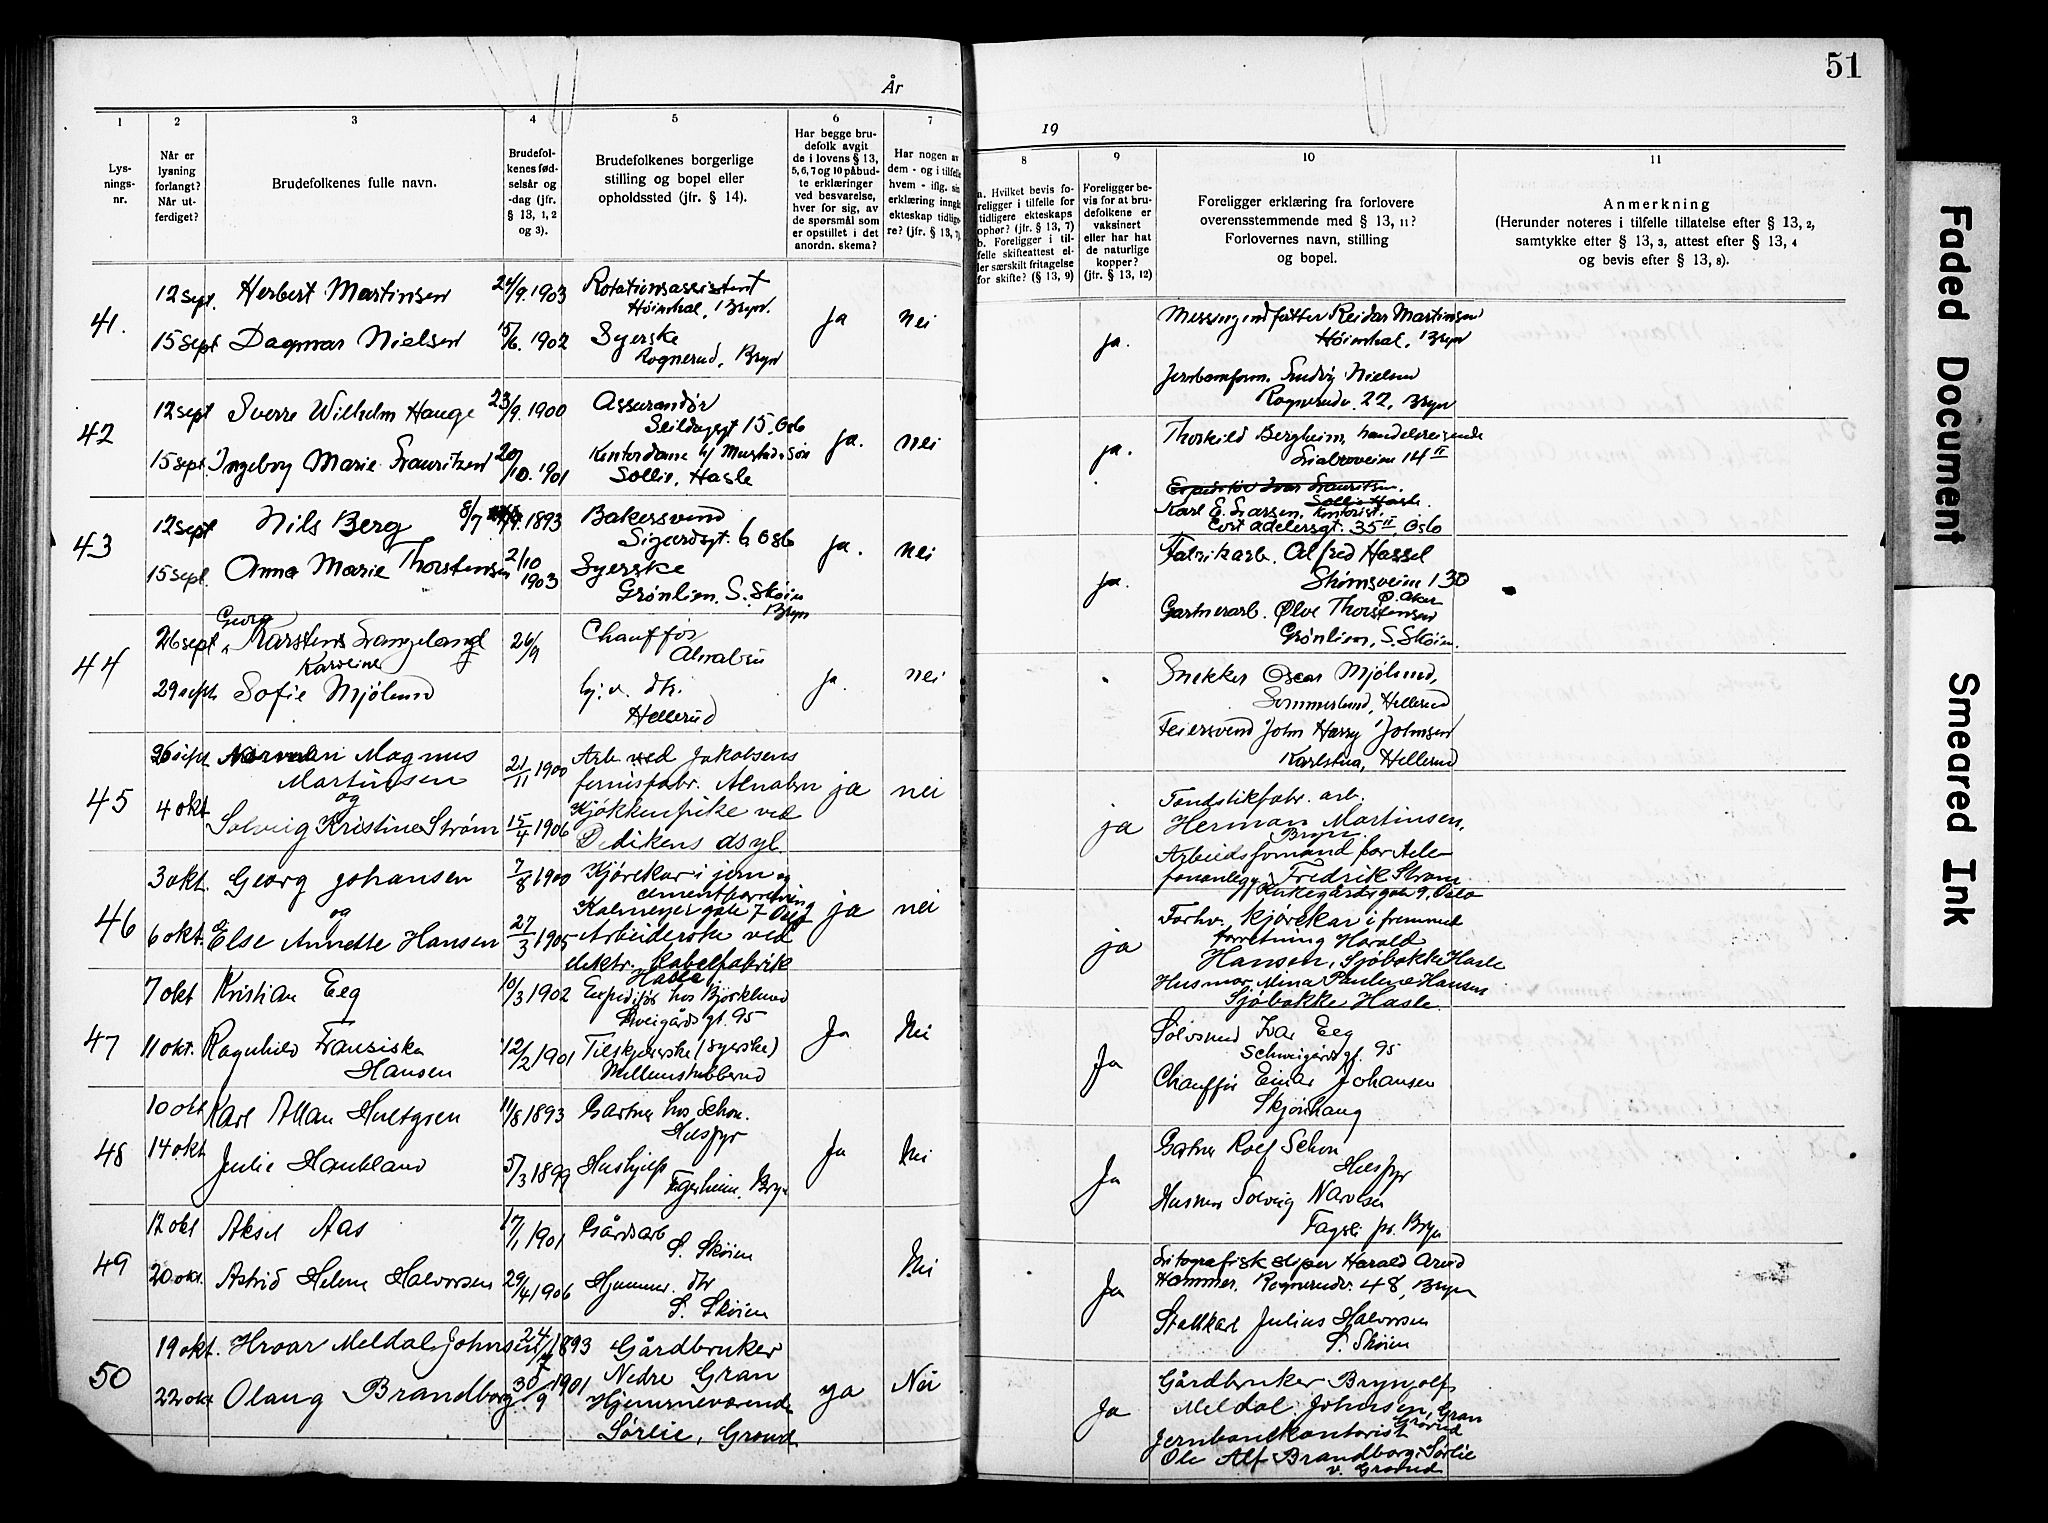 51
År
19
1
2
3
4
5
6
7
8
9
10
11
Lysningsnr.
Når er lysning forlangt? Når utferdiget?
Brudefolkenes fulle navn.
Brudefolkenes fødselsår og -dag (jfr. § 13, 1, 2 og 3).
Brudefolkenes borgerlige stilling og bopel eller opholdssted (jfr. § 14).
Har begge brudefolk avgit de i lovens § 13, 5, 6, 7 og 10 påbudte erklæringer ved besvarelse, hver for sig, av de spørsmål som er opstillet i det anordn. skema?
Har nogen av dem - og i tilfelle hvem - iflg. sin erklæring inngå ekteskap tidligere? (jfr. § 13, 7).
a. Hvilket bevis foreligger i tilfelle for tidligere ekteskaps ophør? (jfr. § 13, 7) b. Foreligger i tilfelle skifteattest eller særskilt fritagelse for skifte? (§ 13, 9)
Foreligger bevis for at brudefolkene er vaksinert eller har hat de naturlige kopper? (jfr. § 13, 12)
Foreligger erklæring fra forlovere overensstemmende med § 13, 11? Forlovernes navn, stilling og bopel.
Anmerkning (Herunder noteres i tilfelle tillatelse efter § 13, 2, samtykke efter § 13, 3, attest efter § 13, 4 og bevis efter § 13, 8).
41.
12 sept. Herbert Martinsen 24/9. 1903 Rotationsassistent
Høienhal, Bryn.
ja nei
15 sept Dagmar Nielsen 15/6. 1902 Syerske
Rognerud, Bryn
ja.
Reidar Martinsen
Høienhal, Bryn
Nielsen
Rognerudv. 22, Bryn
42
12 sept Sverre Wilhelm Hauge 23/9. 1900 Assurandør
Seilduksgt 15, Oslo
ja. nei
15 sept. Ingeborg Marie Lauritzen 20/10. 1901 Kontordame
Sollie, Hasle
ja.
Thorkild Bergheim, handelsreisende
14 II
Karl E. Larsen, kontorist.
Cort Adelersgt. 35 II, Oslo
43
12 sept Nils Berg 8/7 1893 Bakersvend
Sigurdsgt. 6 Oslo
ja. nei
15 sept. Anna Marie Thorstensen 2/10 1903 Syerske
Grønlien, S. Skøien
Bryn
ja.
Fabrikarb. Alfred Hassel
Strømsveien 130
Ø. Aker
Gartnerarb. Ølve Thorstensen
Grønlien, S. Skøien.
44
26 sept Georg Karstens Langeland 26/9 Chauffør
Alnabru
ja. nei
29 sept. Karoline Sofie Mjølund hj. v. dtr.
Hellerud
Snekker Oscar Mjølund,
Sommerlund, Hellerud
Feiersvend John Harry Johnsen
Karlstua, Hellerud
45
26 sept Magnus
Martinsen 21/11 1900 Arb. ved Jakobsens
fernisfabr. Alnabru
ja nei
og
4 okt Solveig Kristine Strøm 15/4 1906 Kjøkkenpike ved
Dedikens asyl.
ja
Tændstikfabr. arb.
Herman Martinsen,
Bryn.
Arbeidsformand for
Fredrik Strøm
Kirkegårdsgate 9, Oslo
46
3 okt. Georg Johansen 7/8 1900 Kjørekar i jern og
cementforretning
Kalmeyer gate 7 Oslo
ja nei
og
6 okt. Else Annette Hansen 27/3 1905 Arbeiderske ved
elektr. Kabelfabrik
Hasle
ja
Forhv. kjørekar i
forretning Harald
Hansen, Sjøbakke Hasle
Husmor Mina Pauline Hansen
Sjøbakke Hasle.
47
7 okt Kristian Eeg 10/3 1902 Expeditør hos Bjørklund
Schweigårds gt. 95
Ja Nei
11 okt. Ragnhild Fransiska
Hansen 12/2 1901 Tilskjærerske (syerske)
Ja
Sølvsmed Ivar Eeg
Schweigårdsgt. 95
Chauffør Einar Johansen
Skjønhaug
48
10 okt Karl Allan Hultgren 11/8 1893 Gartner hos Schou.
Helsfyr
Ja Nei
14 okt Julie Haukland 5/3 1899 Hushjelp
Bryn
Ja
Gartner Rolf Schou
Helsfyr
Husmor Solveig Narvesen
Fagerli pr. Bryn
49
12 okt Aksel Aas 17/1 1901 Gårdsarb
S. Skøien
Nei
20 okt. Astrid Helene Halvorsen 29/4 1906 Hjemmev. dtr
S. Skøien
Ja
Litografisk sliper Harald Arvid
Hammer, Rognerudv. 48, Bryn
Stallkarl Julius Halvorsen
S. Skøien
50
19 okt. Hroar Meldal Johnsen 24/ 1893 Gårdbruker
Nedre Gran
ja Nei
22 okt Olaug Brandborg 30/9 1901 Hjemmeværende
Sørlie, Grorud
Ja
Gårdbruker Brynjolf
Meldal Johnsen, Gran
Grorud
Jernbanekontorist
Ole Alf Brandborg Sørlie
v. Grorud
Faded Document
Smeared Ink